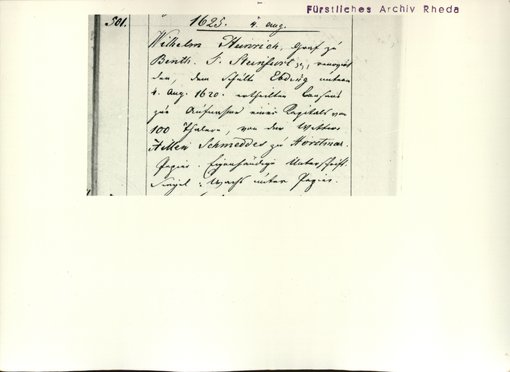 Fürstliches Archiv Rheda
501.
1625. 4. Aug.
Wilhelm Heinrich, Graf zu
Benth. T. Steinfort, renovirt
den, dem Schulte Ebding unterm
4. Aug. 1620. ertheilten Consens
zur Aufnahme eines Capitals von
100 Thalern, von der Wittwe
Hillen Schmeddes zu Horstmar.
Papier. Eigenhändige Unterschrift.
Siegel: Wachs unter Papier.